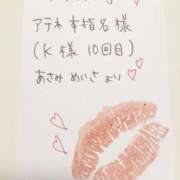 アテネ本指名様
(K様10回目)
あさみ めいさ より